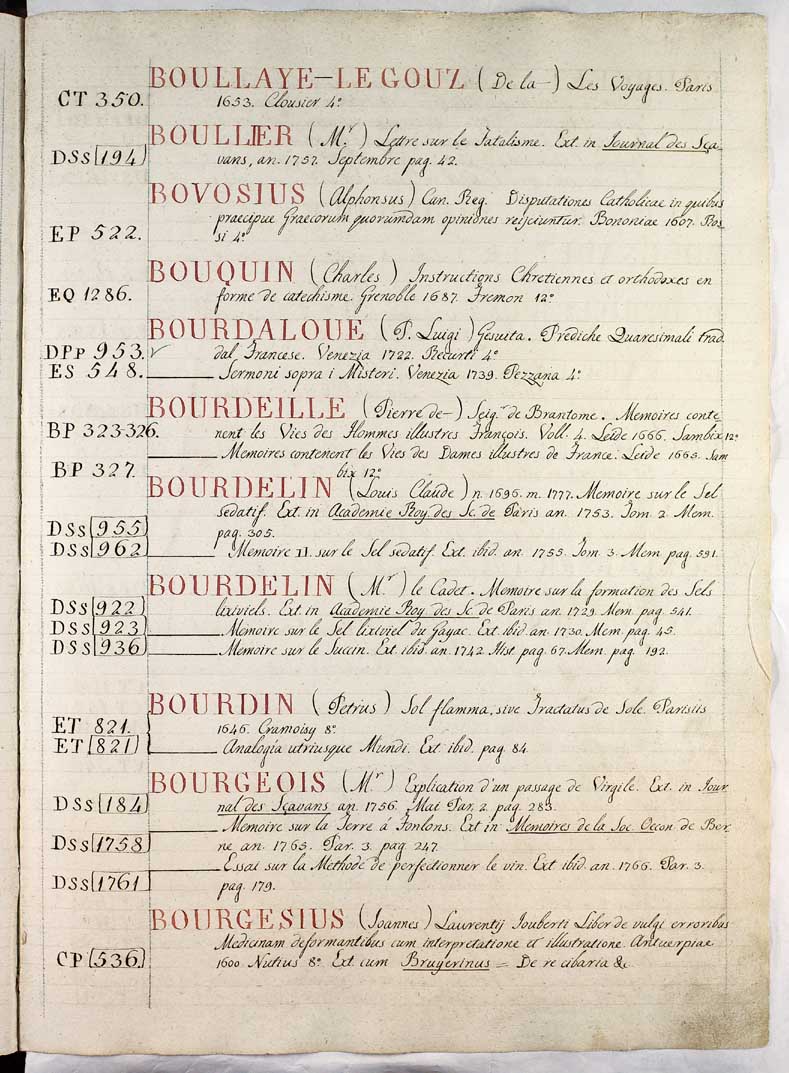 BOULLAYE-LE GOUZ (De la-) Les Voyages. Paris
CT 350. 1653. Clousier 4°
BOULLIER (Mr) Lettre sur le Fatalisme. Ext. in Journal des Sça-
DSs [194] vans, an. 1757. Septembre pag. 42.
BOVOSIUS (Alphonsus) Can. Reg. Disputationes Catholicae in quibus
praecipue Graecorum quorumdam opiniones reijciuntur. Bononiae 1607. Ros-
EP 522. si 4°
BOUQUIN (Charles) Instructions Chretiennes et orthodoxes en
EQ 1286. forme de catechisme. Grenoble 1687. Fremon 12°
BOURDALOUE (P. Luigi) Gesuita. Prediche Quaresimali trad.
DPp 953. dal Francese. Venezia 1722. Recurti 4°
ES 548. Sermoni sopra i Misteri. Venezia 1739. Pezzana 4°
BOURDEILLE (Pierre de-) Seigr de Brantome. Memoires conte-
BP 323-326. nent les Vies des Hommes illustres François. Voll. 4. Leide 1666. Sambix 12°
Memoires contenent les Vies des Dames illustres de France. Leide 1665. Sam-
BP 327. bix 12°
BOURDELIN (Louis Claude) n. 1696. m. 1777. Memoire sur le Sel
sedatif. Ext. in Academie Roy des Sc. de Paris an. 1753. Tom. 2. Mem.
DSs [955] pag. 305.
DSs [962] Memoire II. sur le Sel sedatif. Ext. ibid. an. 1755. Tom. 3. Mem. pag. 591.
BOURDELIN (Mr) le Cadet. Memoire sur la formation des Sels
DSs [922] lixiviels. Ext. in Academie Roy des Sc. de Paris an. 1729. Mem. pag. 541.
DSs [923] Memoire sur le Sel lixiviel du Gayac. Ext. ibid an. 1730. Mem. pag. 45.
DSs [936] Memoire sur le Succin. Ext. ibid. an. 1742. Hist. pag. 67. Mem. pag. 192.
BOURDIN (Petrus) Sol flamma, sive Tractatus de Sole. Parisiis
ET 821. 1646. Cramoisy 8°
ET [821] Analogia utriusque Mundi. Ext. ibid. pag. 84.
BOURGEOIS (Mr) Explication d'un passage de Virgile. Ext. in Jour-
DSs [184] nal des Sçavans an. 1756. Mai Par. 2. pag. 283.
Memoire sur la Terre á Fonlons. Ext. in Memoires de la Soc. Oecon de Ber-
DSs [1758] ne an. 1765. Par. 3. pag. 247.
Essai sur la Methode de perfectionner le vin. Ext. ibid. an. 1766. Par. 3.
DSs [1761] pag. 179.
BOURGESIUS (Joannes) Laurentij Jouberti Liber de vulgi erroribus
Medicinam deformantibus cum interpretatione et illustratione. Antuerpiae
CP [536.] 1600. Nutius 8° Ext. cum Bruyerinus = De re cibaria &c